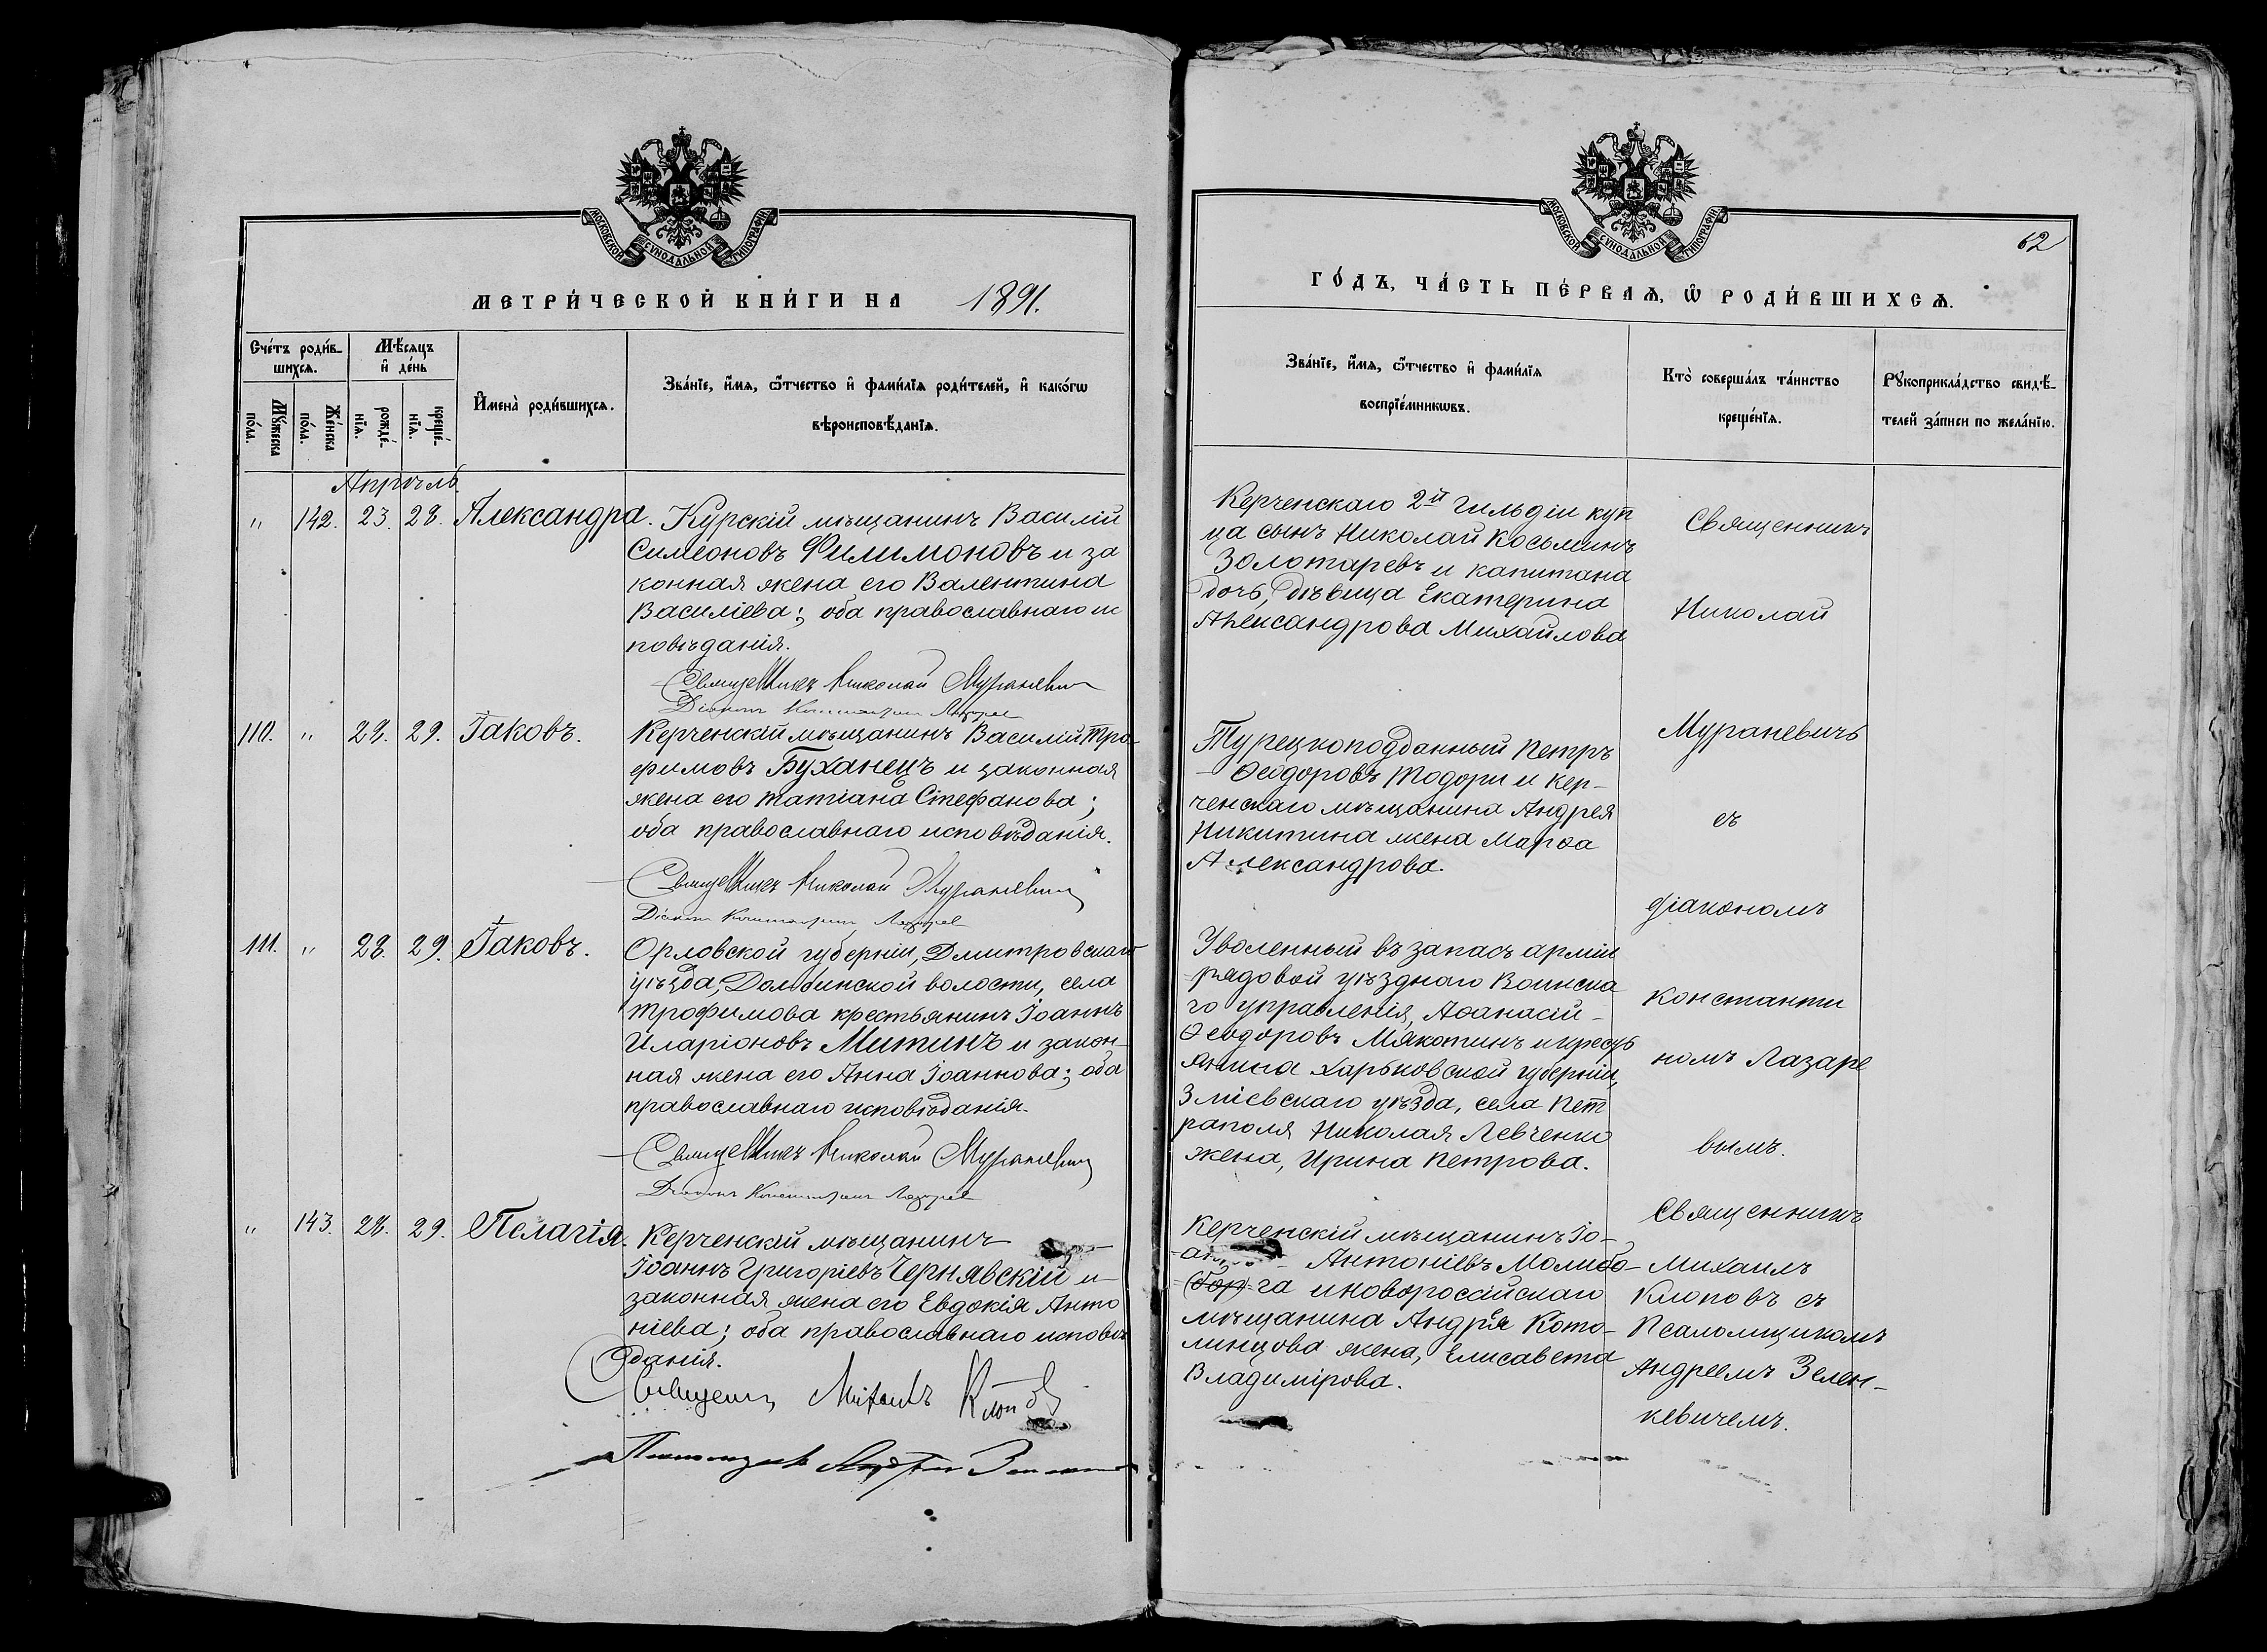 МОСКОВСКОЙ СУНОДАЛЬНОЙ ТИПОГРАФІИ
МЕТРИ́ЧЕСКОЙ КНИ́ГИ НА 1891.
Сче́тъ роди́в-
шихсѧ.
Мꙋ́жеска
по́ла.
Же́нска
по́ла.
Мѣ́сѧцъ
и҆ де́нь
рожде́-
нїѧ.
креще́-
нїѧ.
И҆мена̀ роди́вшихсѧ.
Зва́нїе, и҆́мѧ, ѻ҆́тчество и҆ фами́лїѧ роди́телей, и҆ како́гѡ
вѣроисповѣ́данїѧ.
Апрѣль.
" 142. 23. 28. Александра. Курскій мѣщанинъ Василій
Симеоновъ Филимоновъ и за
конная жена его Валентина
Василіева; оба православнаго ис
повѣданія.
Священникъ Николай Мураневич
Діаконъ Константин Лазарев
110. " 28. 29. Іаковъ. Керченскій мѣщанинъ Василій Тро-
фимовъ Буханецъ и законная
жена его Татіана Стефанова;
оба православнаго исповѣданія.
Священникъ Николай Мураневич
Діаконъ Константин Лазарев
111. " 28. 29. Іаковъ. Орловской губерніи, Дмитровскаго
уѣзда, Долбинской волости, села
Трофимова крестьянинъ Іоаннъ
Иларіоновъ Митинъ и закон-
ная жена его Анна Іоаннова; оба
православнаго исповѣданія.
Священникъ Николай Мураневич
Діаконъ Константин Лазарев
" 143. 28. 29. Пелагія. Керченскій мѣщанинъ
Іоаннъ Григоріевъ Чернявскій и
законная жена его Евдокія Анто
ніева; оба православнаго исповѣ
данія.
Священ. Михаилъ Клопов
Псаломщикъ Андрей
МОСКОВСКОЙ СУНОДАЛЬНОЙ ТИПОГРАФІИ
62
ГО́ДЪ, ЧА́СТЬ ПЕ́РВАѦ, Ѡ҆ РОДИ́ВШИХСѦ.
Зва́нїе, и҆́мѧ, ѻ҆́тчество и҆ фами́лїѧ
воспрїе́мникѡвъ.
Кто̀ соверша́лъ та́инство
креще́нїѧ.
Рꙋкоприкла́дство свидѣ́-
телей за́писи по жела́нїю.
Керченскаго 2й гильдіи куп
ца сынъ Николай Косьминъ
Золотаревъ и капитана
дочь, дѣвица Екатерина
Александрова Михайлова
Турецкоподданный Петръ
Ѳеодоровъ Тодори и кер-
ченскаго мѣщанина Андрея
Никитина жена Марѳа
Александрова.
Уволенный въ запасъ арміи
рядовой уѣзднаго Воинска
го управленія, Аѳанасій
Ѳеодоровъ Мякотинъ и крест
янина Харьковской губерніи,
Зміевскаго уѣзда, села Пет
раполя Николая Левченко
жена, Ирина Петрова.
Керченскій мѣщанинъ Іо-
Антоніевъ Молибо-
га и новороссійскаго
мѣщанина Андрея Кото-
линцова жена, Елисавета
Владимірова.
Священникъ
Николай
Мураневичъ
съ
діакономъ
Константи
номъ Лазаре
вымъ.
Священникъ
Михаилъ
Клоповъ съ
Псаломщикомъ
Андреемъ Зелен-
кевичемъ.